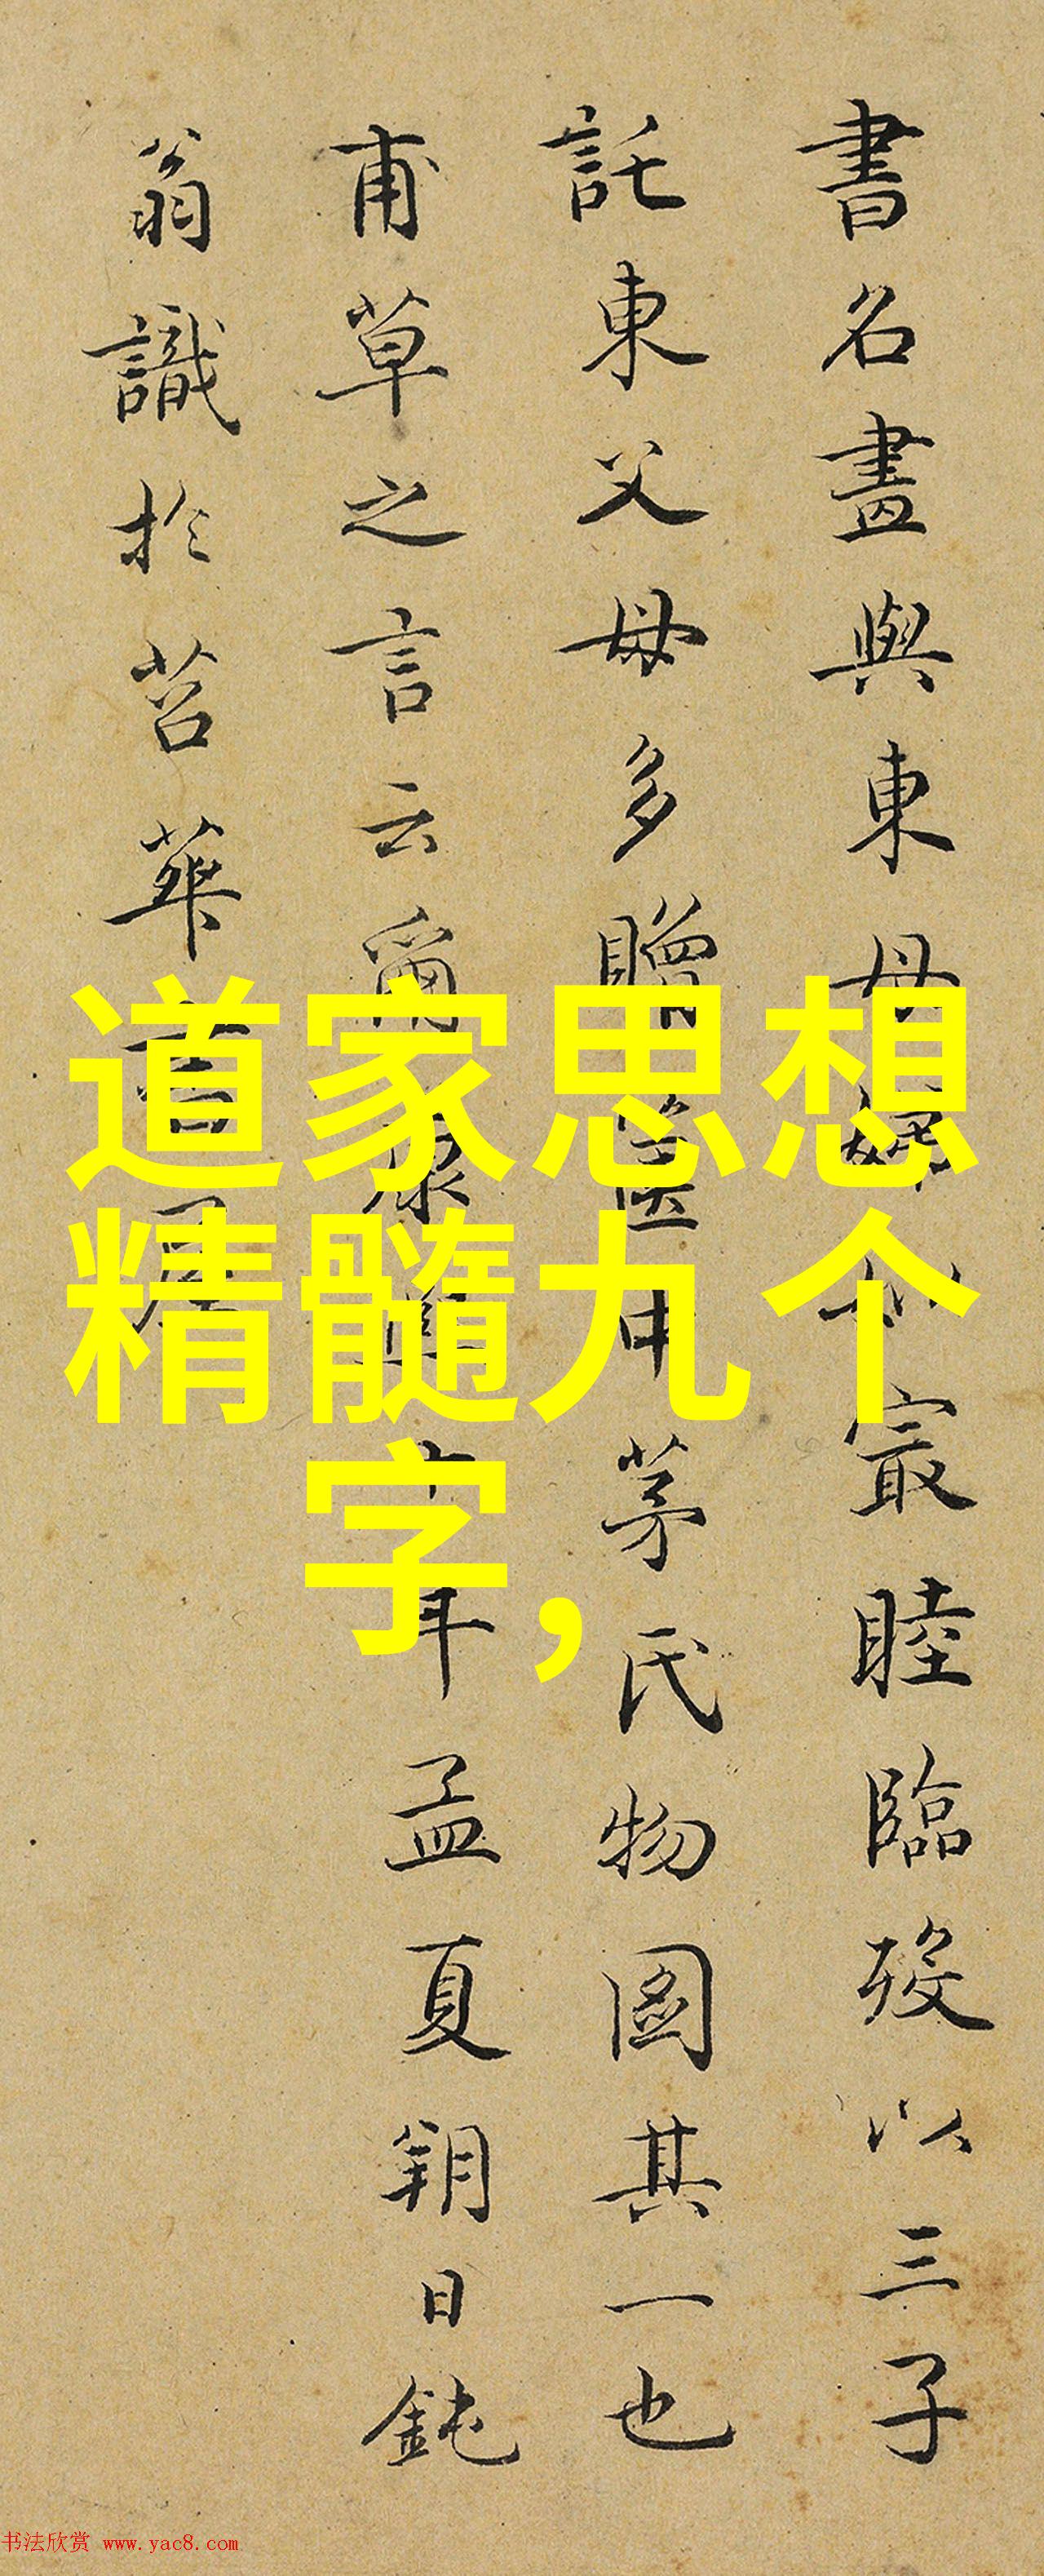 書名畫與東母婦家最睦臨歿以三子
託東父母多贈醫中茅氏物圖其一也
甫草之言云爾康年孟夏朔日鈍
翁識於苕華書屋
道家思想
精髓九个
字，
书法欣赏 www.yac8.com